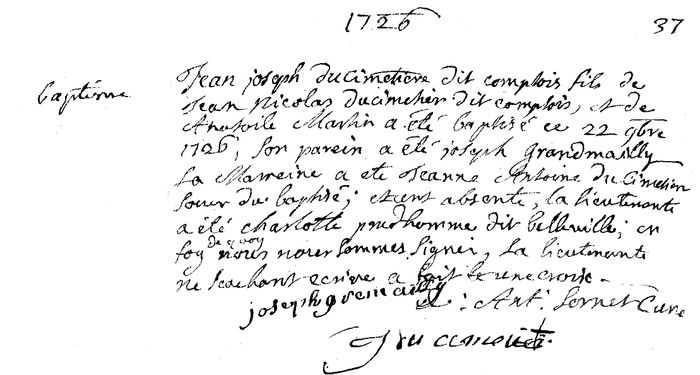 1726
37
baptême
Jean joseph ducimetiere dit comptois fils de
Jean Nicolas ducimetier dit comptois, et de
Anatoile Martin a été baptisé ce 22 9bre
1726, son parein a été joseph grandmailly
La Marreine a ete Jeanne Antoine du Cimetier
soeur du baptisé; etant absente, la lieutenante
a été charlotte prudhomme dit belleville; en
foy de quoy nous nous sommes signéz, La lieutenante
ne scachant ecrire a fait une croix -
joseph
Ant: Sornet Curé